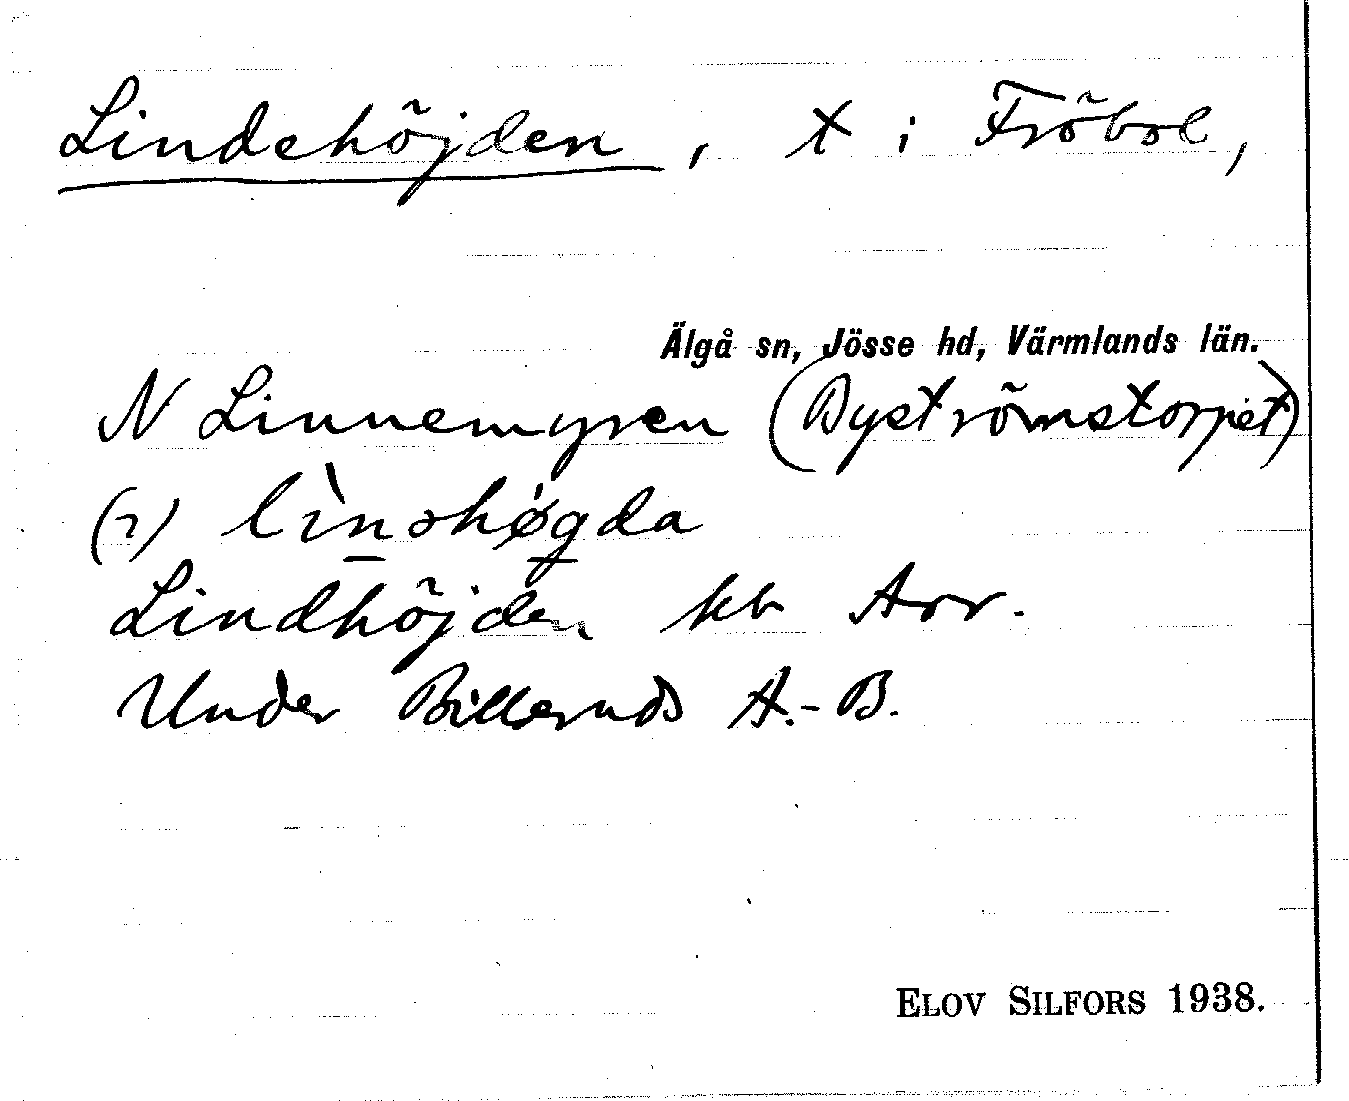 Lindehöjden, t i Fröbol,
Älgå sn, Jösse hd, Värmlands län.
N Linnemyren (Byströmstorpet)
(2) lìnəhøgda
Lindhöjden kb Arr.
Under Billeruds A.-B.
ELOV SILFORS 1938.